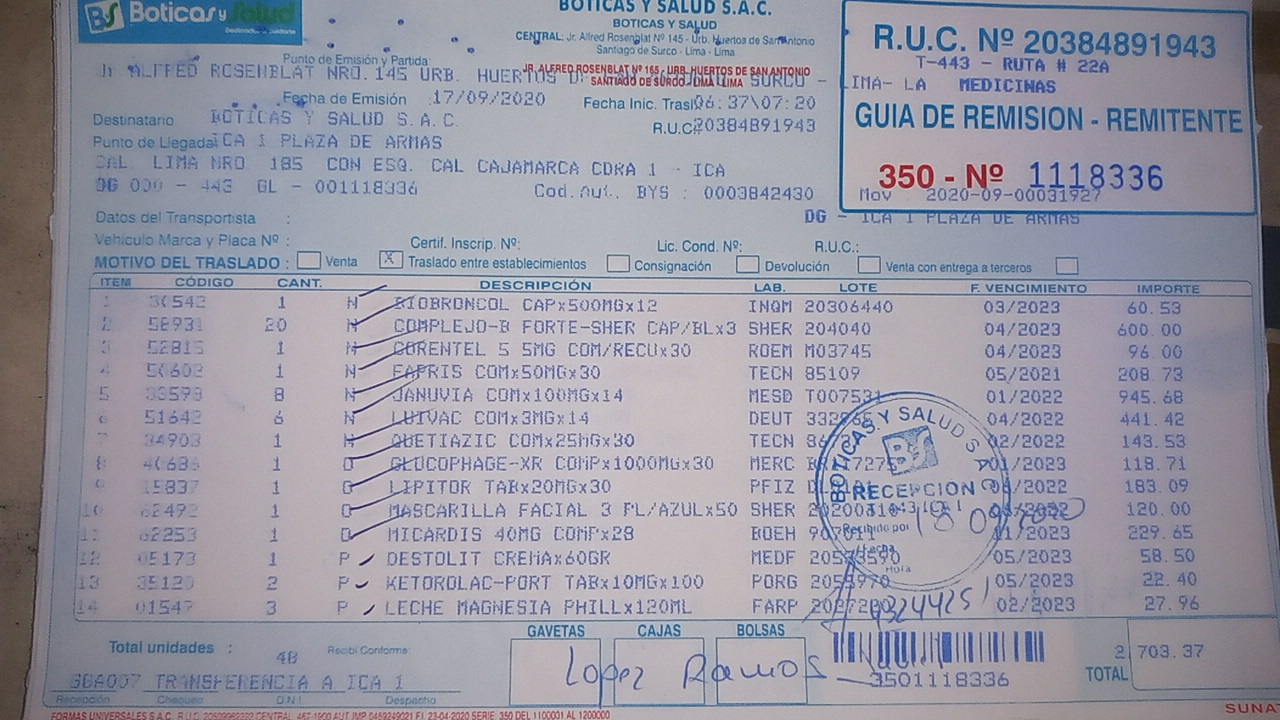 Boticas y Salud
BOTICAS Y SALUD S.A.C.
BOTICAS Y SALUD
CENTRAL: Jr. Alfred Rosenblat Nº 145 - Urb. Huertos de San Antonio
Santiago de Surco - Lima - Lima
R.U.C. Nº 20384891943
T-443 - RUTA # 22A
MEDICINAS
GUIA DE REMISION - REMITENTE
350 - Nº 1118336
Mov 2020-09-00031927
Punto de Emisión y Partida:
Jr ALFRED ROSENBLAT NRO. 145 URB. HUERTOS SURCO - LIMA- LA
JR. ALFREDO ROSENBLAT Nº 165 - URB. HUERTOS DE SAN ANTONIO
SANTIAGO DE SURCO - LIMA - LIMA
Fecha de Emisión 17/09/2020 Fecha Inic. Trasl 06:37\07:20
Destinatario BOTICAS Y SALUD S.A.C. R.U.C. 20384891943
Punto de Llegada ICA 1 PLAZA DE ARMAS
CAL. LIMA NRO 185 CON ESQ. CAL CAJAMARCA CDRA 1 - ICA
DG 000 - 443 GL - 001118336 Cod.Aut. BYS : 0003842430
DG - ICA 1 PLAZA DE ARMAS
Datos del Transportista :
Vehículo Marca y Placa Nº : Certif. Inscrip. Nº: Lic. Cond. Nº: R.U.C.:
MOTIVO DEL TRASLADO : Venta X Traslado entre establecimientos Consignación Devolución Venta con entrega a terceros
ITEM CÓDIGO CANT. DESCRIPCIÓN LAB. LOTE F. VENCIMIENTO IMPORTE
1 30542 1 N BIOBRONCOL CAPx500MGx12 INQM 20306440 03/2023 60.53
2 58931 20 N COMPLEJO-B FORTE-SHER CAP/BLx3 SHER 204040 04/2023 600.00
3 52815 1 N CORENTEL 5 5MG COM/RECUx30 ROEM M03745 04/2023 96.00
4 50603 1 N FAPRIS COMx50MGx30 TECN 85109 05/2021 208.73
5 33593 8 N JANUVIA COMx100MGx14 MESD T007531 01/2022 945.68
6 51642 6 N LUIVAC COMx3MGx14 DEUT 04/2022 441.42
7 34903 1 N QUETIAZIC COMx25MGx30 TECN 02/2022 143.53
8 1 O GLUCOPHAGE-XR COMPx1000MGx30 MERC /2023 118.71
9 15837 1 O LIPITOR TABx20MGx30 PFIZ /2022 183.09
10 62492 1 O MASCARILLA FACIAL 3 PL/AZULx50 SHER 120.00
11 62253 1 O MICARDIS 40MG COMPx28 BOEH 907011 11/2023 229.65
12 05173 1 P DESTOLIT CREMAx60GR MEDF 05/2023 58.50
13 35120 2 P KETOROLAC-PORT TABx10MGx100 PORG 2055970 05/2023 22.40
14 01547 3 P LECHE MAGNESIA PHILLx120ML FARP 02/2023 27.96
BOTICAS Y SALUD S A C
RECEPCION
Recibido por
Fecha
Hora
Total unidades : 48 Recibí Conforme:
GAVETAS CAJAS BOLSAS
Lopez Ramos
3501118336
TOTAL 2 703.37
GBA007 TRANSFERENCIA A ICA 1
Recepción Chequeo D.N.I. Despacho
SUNA